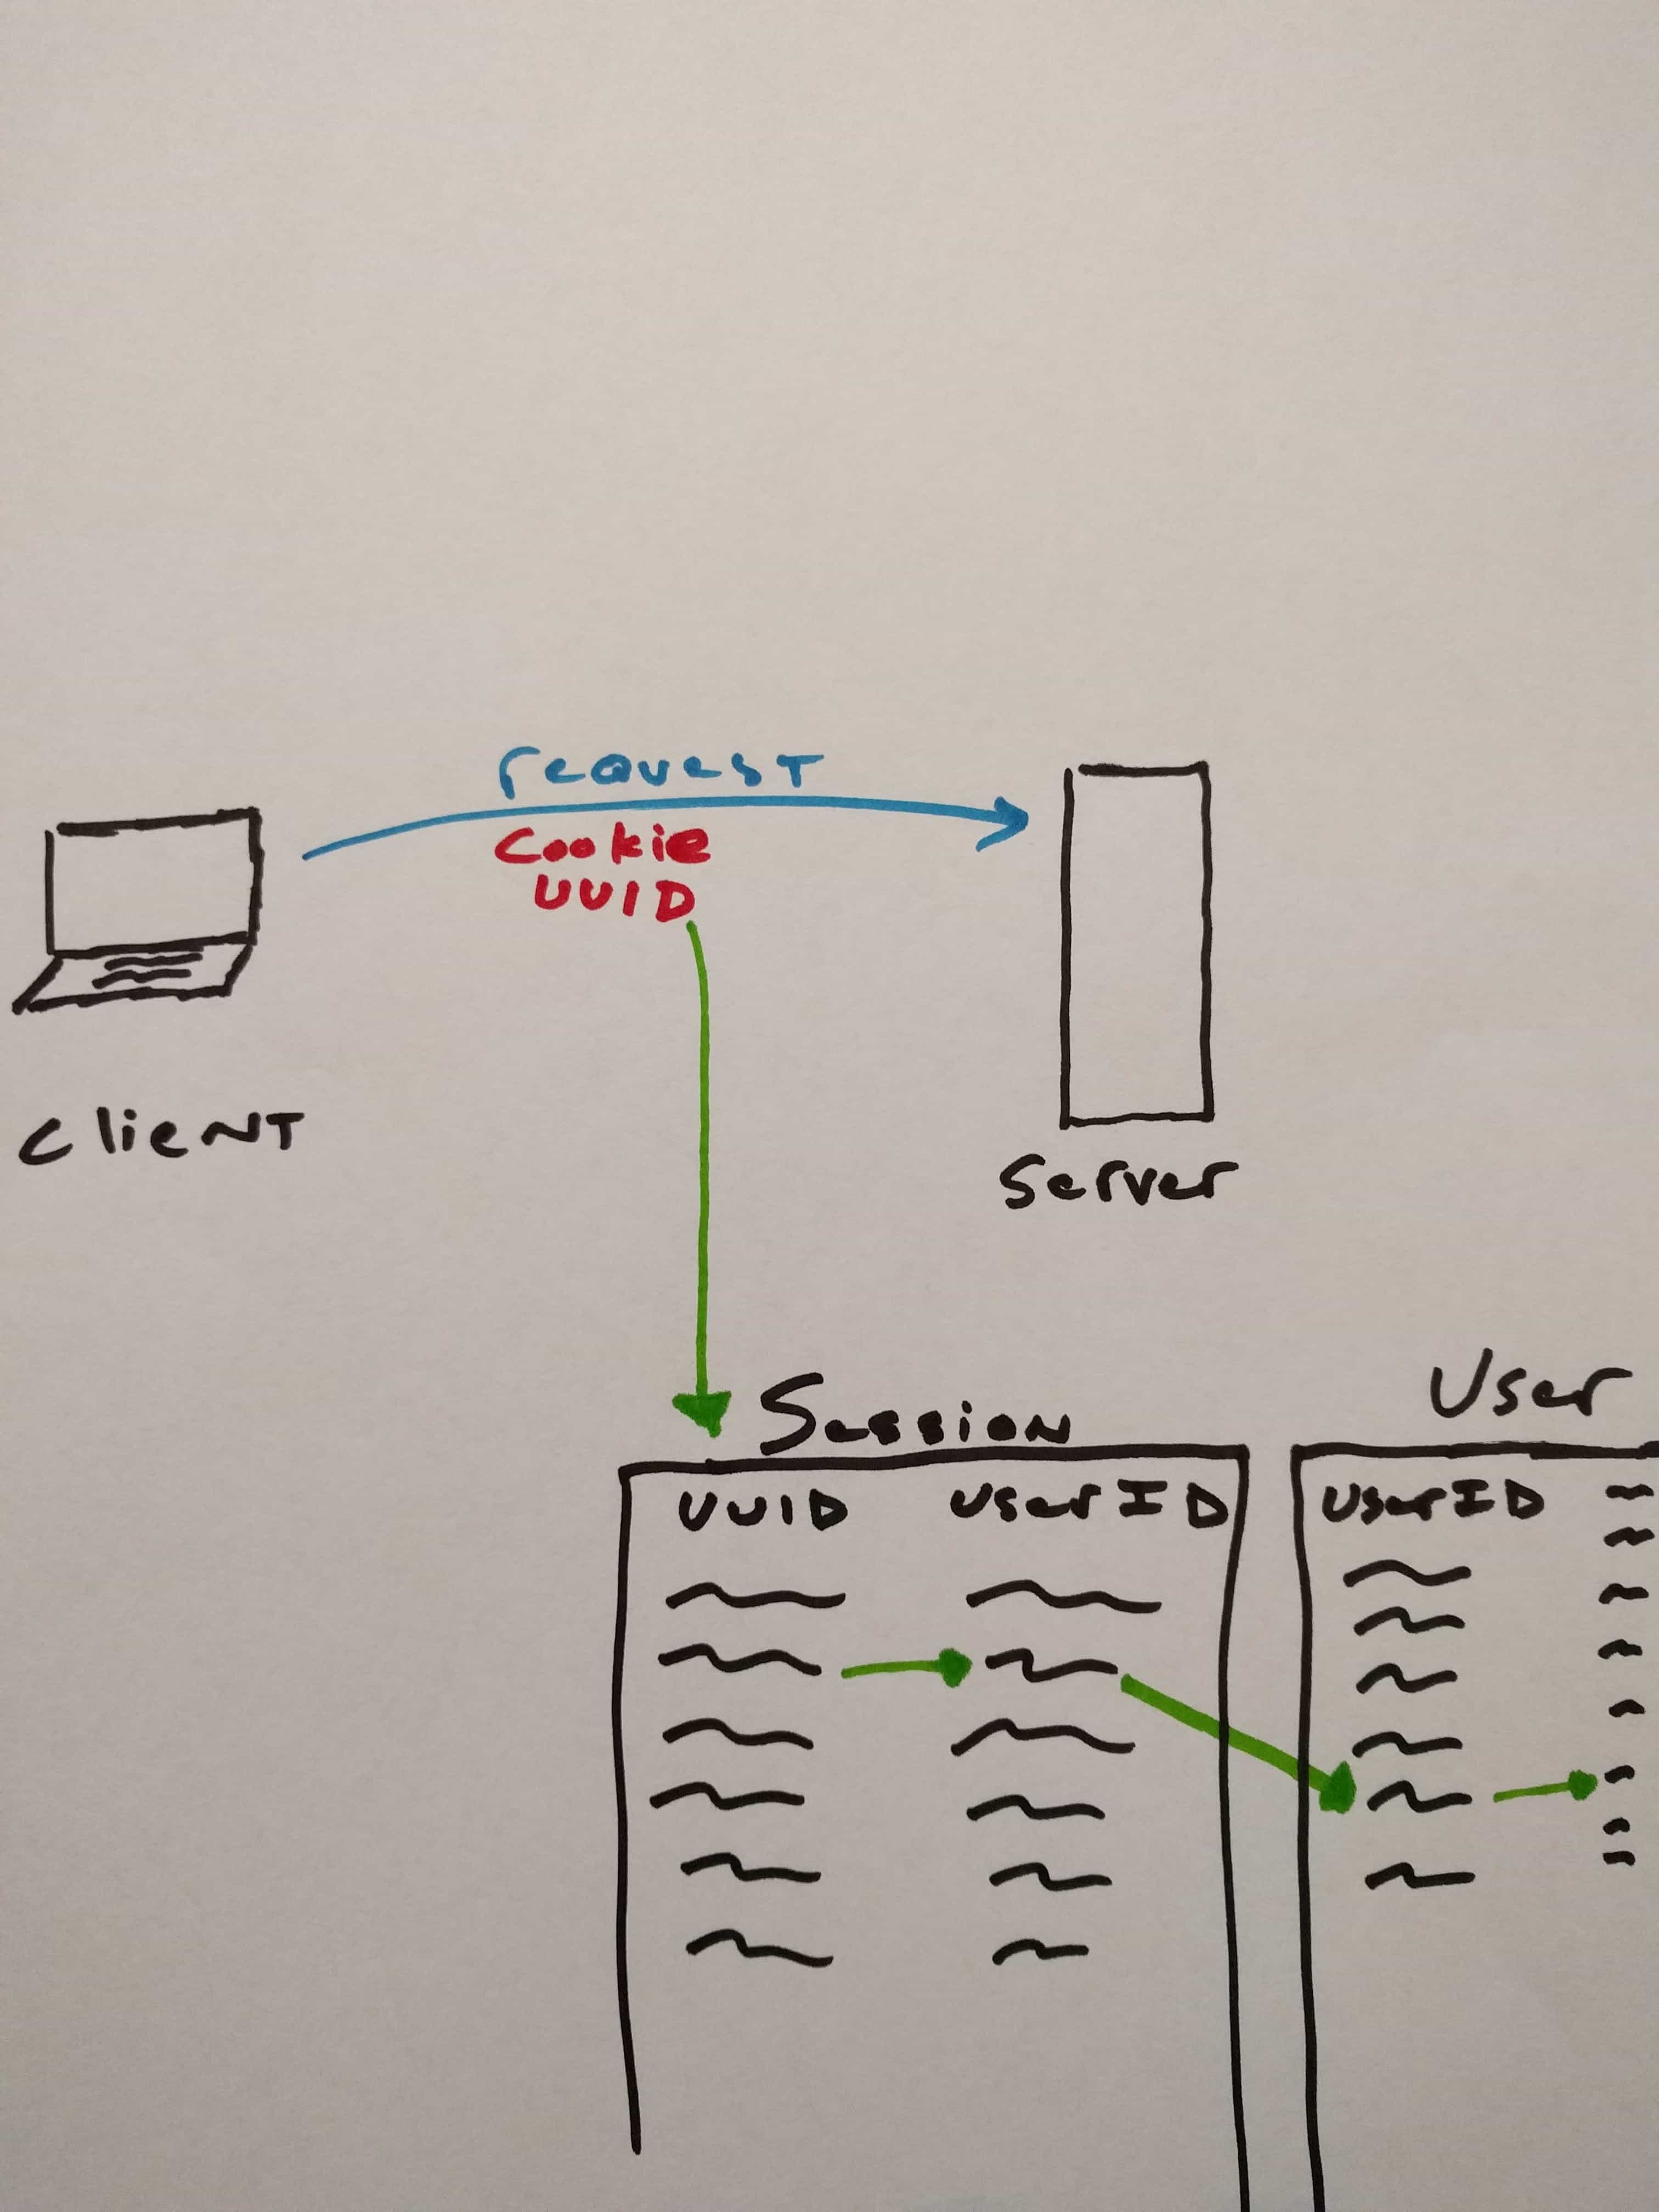 request
Cookie
UUID
Client
Server
Session
User
UUID UserID
UserID